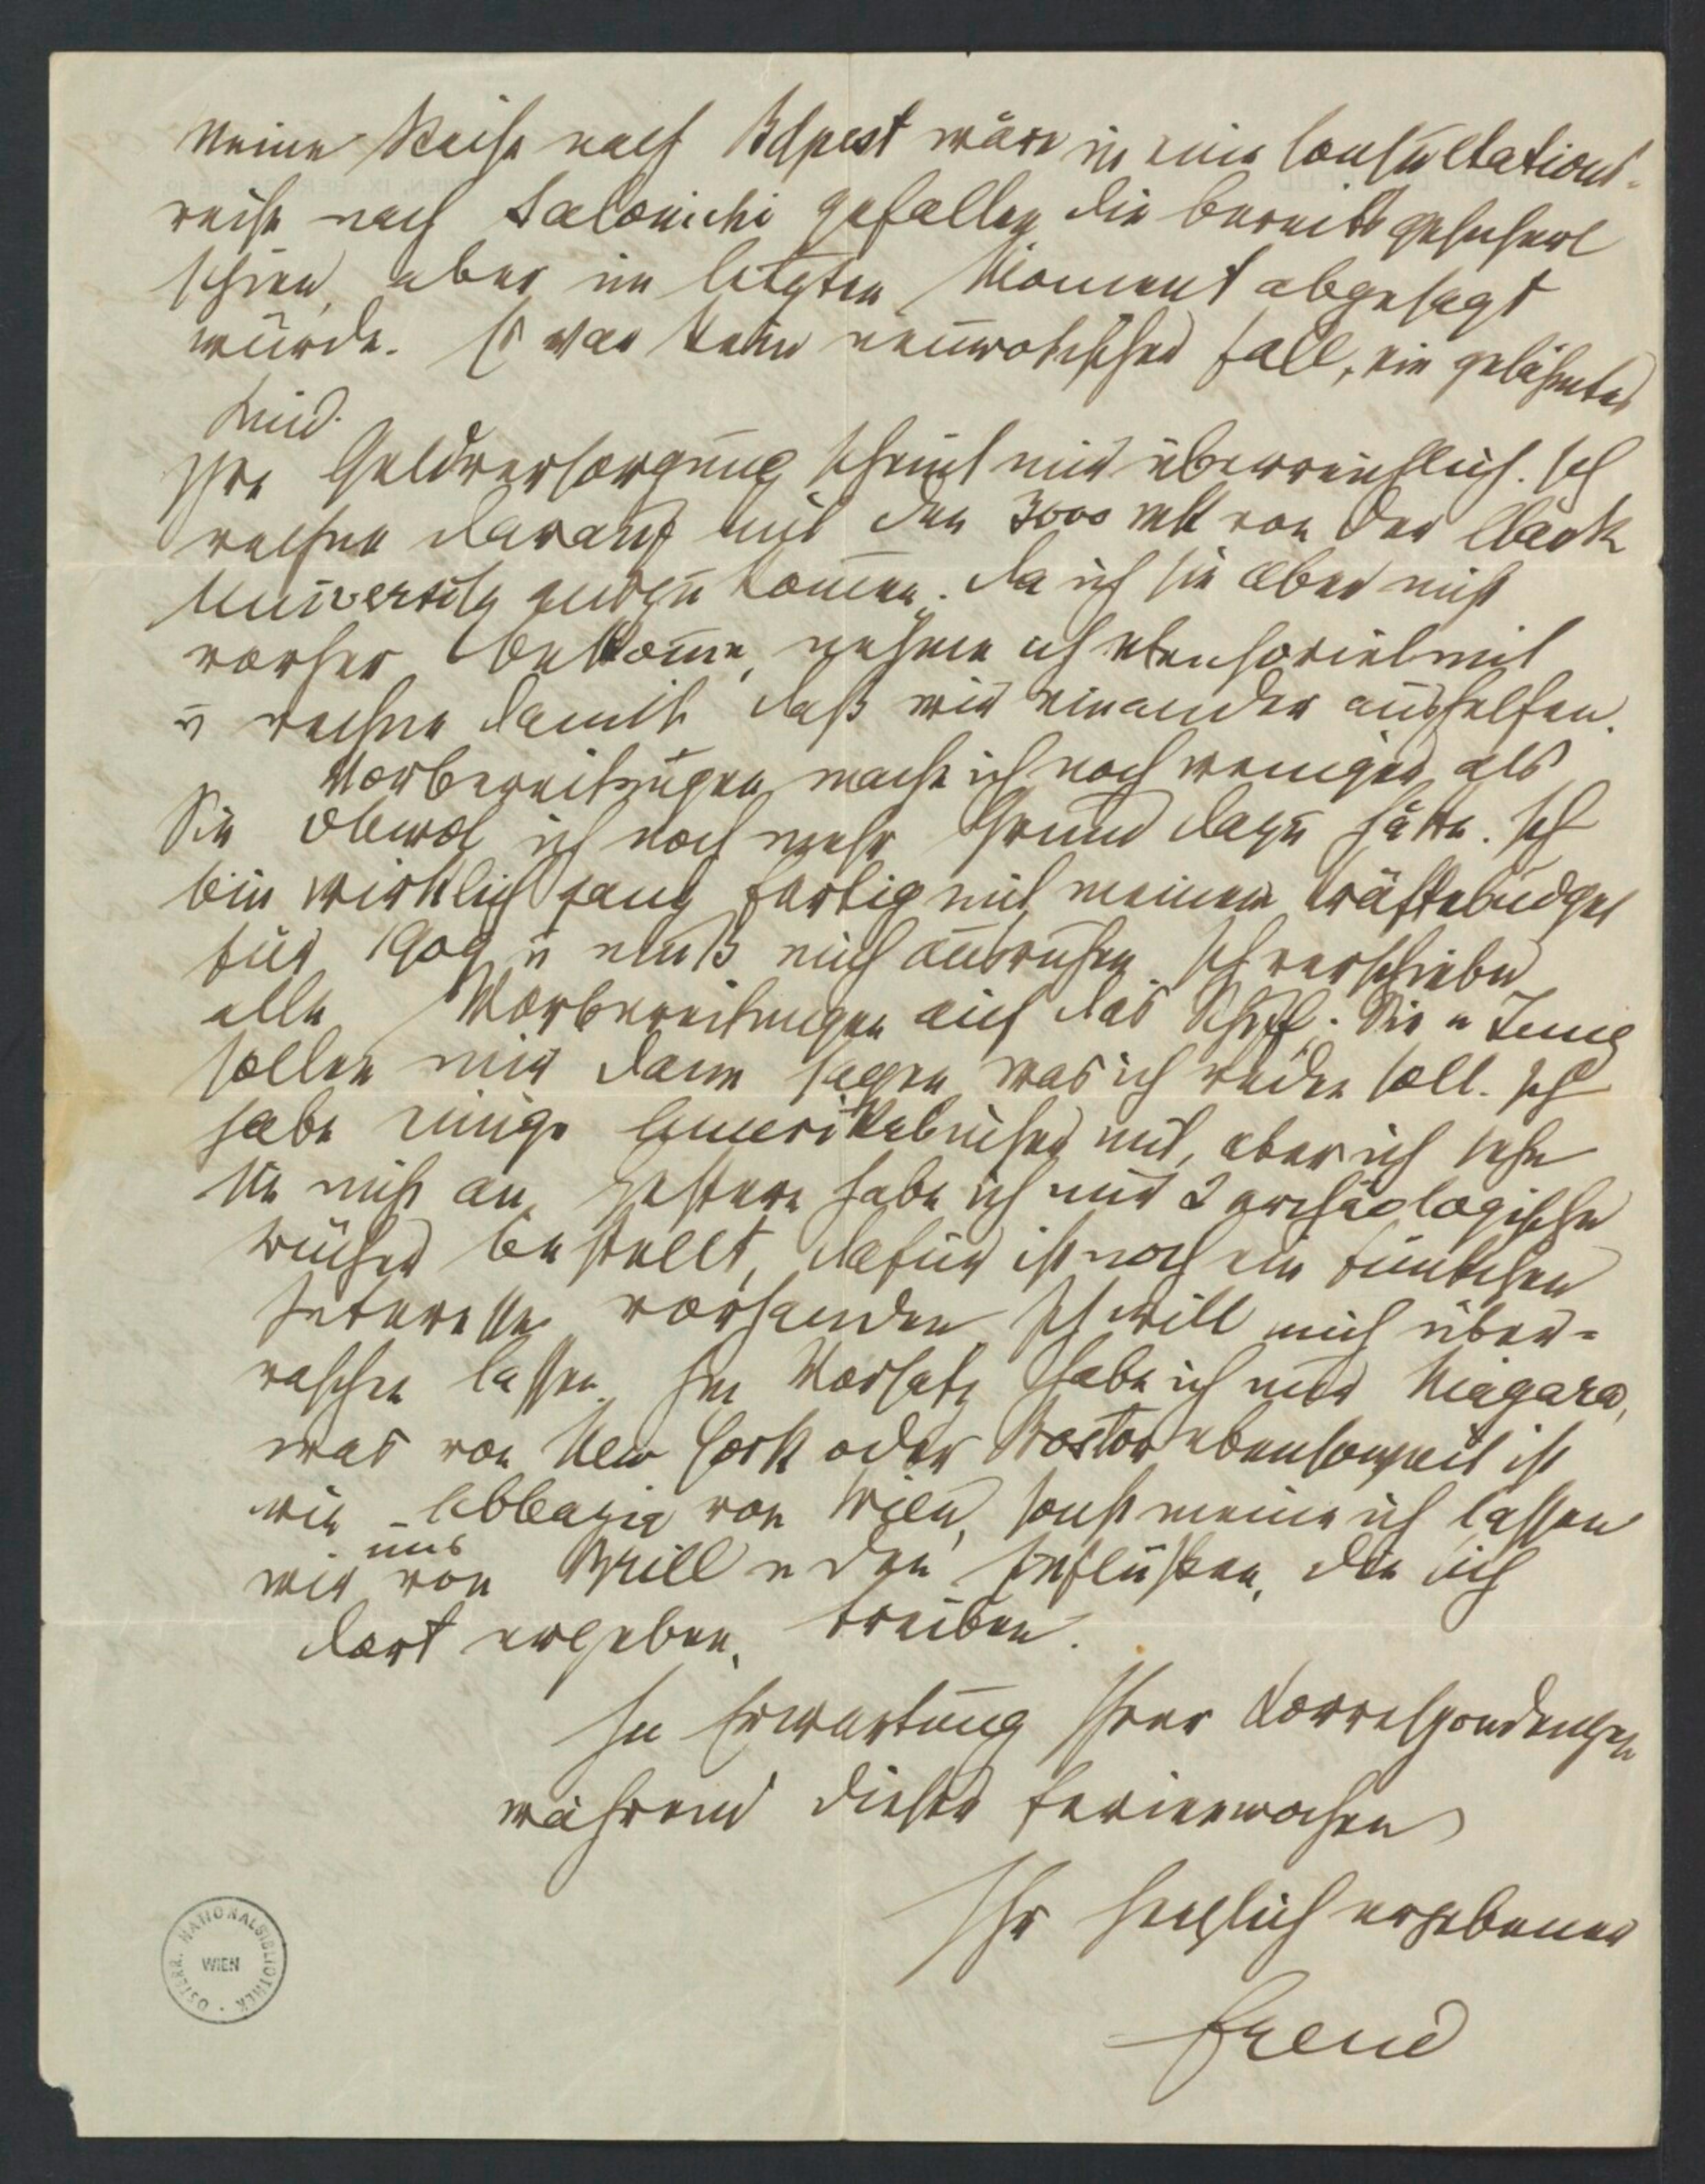 Meine Reise nach Bdpest wäre in eine Consultations-
reise nach Salonichi gefallen, die bereits gesichert
schien, aber im letzten Moment abgesagt
wurde. Es war kein neurotischer Fall, ein gelähmtes
Kind.
Ihre Geldversorgung scheint mir überreichlich. Ich
rechne darauf mit den 3000 Mk von der Clark
University auszukommen. Da ich sie aber nicht
vorher bekomme, nehme ich ebensoviel mit
u rechne damit, daß wir einander aushelfen.
Vorbereitungen mache ich noch weniger als
Sie obwol ich noch mehr Grund dazu hätte. Ich
bin wirklich ganz fertig mit meinem Kräftebudget
für 1909 u muß mich ausruhen. Ich verschiebe
alle Vorbereitungen auf das Schiff. Sie u Jung
sollen mir dann sagen, was ich reden soll. Ich
habe einige Amerikabücher mit, aber ich sehe
sie nicht an. Gestern habe ich mir 2 archäologische
Bücher bestellt, dafür ist noch ein Fünkchen
Interesse vorhanden. Ich will mich über-
raschen lassen. Im Vorsatz habe ich nur Niagara,
was von New York oder Boston ebensoweit ist
wie Abbazia von Wien, sonst meine ich lassen
wir uns von Brill u den Einflüßen, die sich
dort ergeben, treiben.
In Erwartung Ihrer Korrespondenzen
während dieser Ferienwochen
Ihr herzlich ergebener
Freud
ÖSTERR. NATIONALBIBLIOTHEK · WIEN